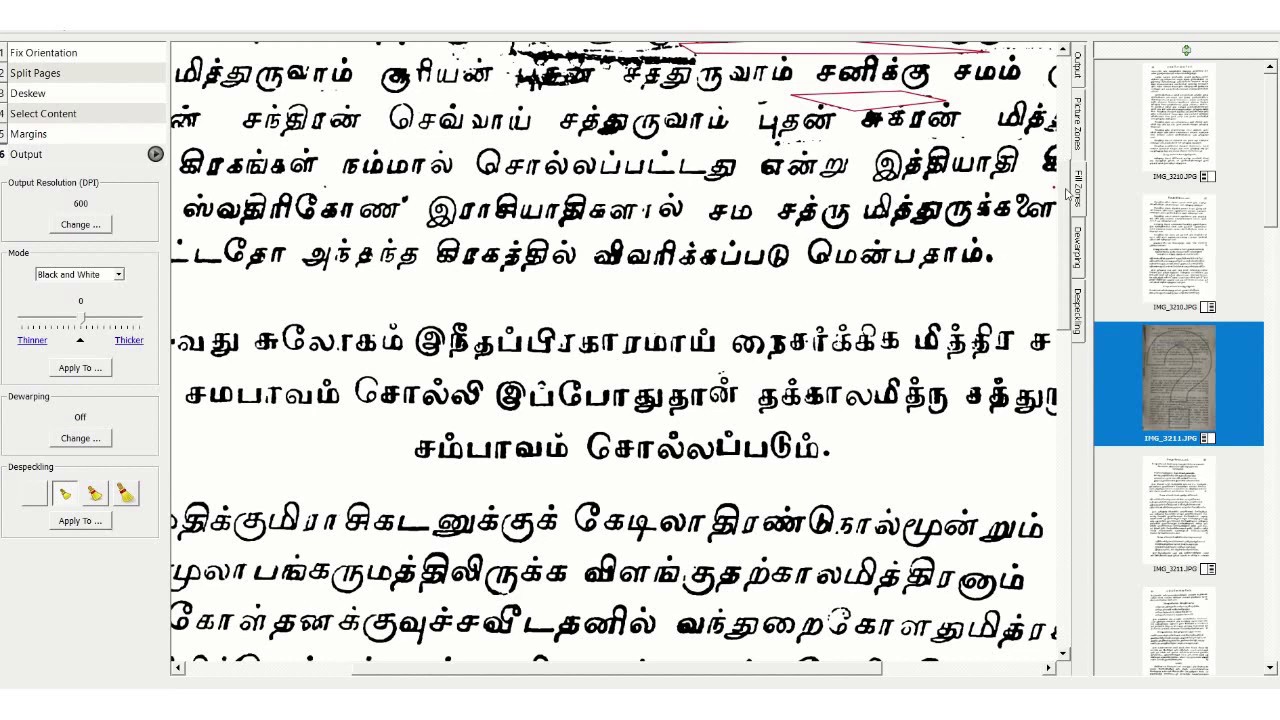 1 Fix Orientation
2 Split Pages
3 Deskew
4 Select Content
5 Margins
6 Output
Output Resolution (DPI)
600
Change ...
Mode
Black and White
0
Thinner
Thicker
Apply To ...
Dewarping
Off
Change ...
Despeckling
Apply To ...
மித்துருவாம் சூரியன் புதன் சத்துருவாம் சனிக்கு சமம்
சந்திரன் செவ்வாய் சத்துருவாம் புதன் சுக்ரன்
கிரகங்கள் நம்மால் சொல்லப்பட்டது என்று இத்தியாதி
இராசியாதிகளால் சம சத்ரு மித்துருக்களை
ட்டதோ அந்தந்த கிரகத்தில் விவரிக்கப்படு மென்பதாம்.
வது சுலோகம் இந்தப்பிரகாரமாய் நைசர்க்கிக மித்திர ச
சமபாவம் சொல்லி இப்போதுதான் தக்காலமித்ரு சத்துரு
சம்பாவம் சொல்லப்படும்.
திக்குமிராசிகடனுக்குக் கேடிலாதிரண்டு நால்மூன்றும்
முலாபங்கருமத்திலிருக்க விளங்குதற்காலமித்திரனாம்
கோள்தனக்குவுச்சவீடதனில் வந்துறைகோளதுமித்ர
Output
Picture Zones
Fill Zones
Dewarping
Despeckling
IMG_3210.JPG
IMG_3210.JPG
IMG_3211.JPG
IMG_3211.JPG